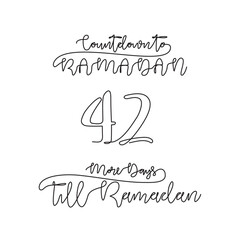 Countdown to
RAMADAN
42
More Days
till Ramadan